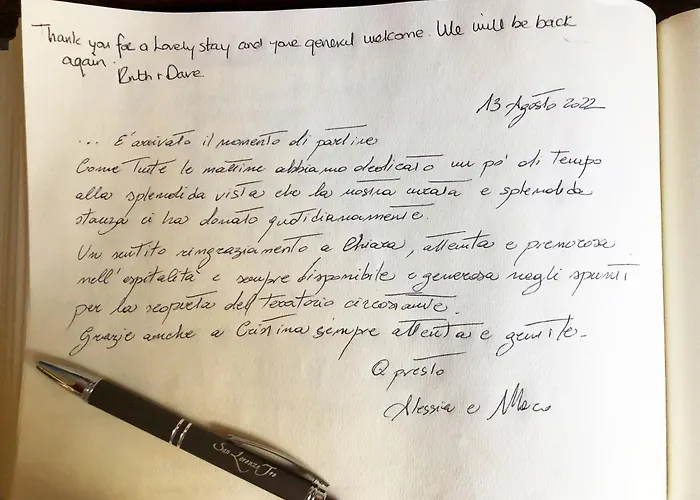 Thank you for a lovely stay and your general welcome. We will be back
again.
Ruth + Dave
13 Agosto 2022
... E' arrivato il momento di partire
Come tutte le mattine abbiamo dedicato un po' di tempo
alla splendida vista che la nostra curata e splendida
stanza ci ha donato quotidianamente.
Un sentito ringraziamento a Chiara, attenta e premurosa
nell'ospitalità e sempre disponibile e generosa negli spunti
per la scoperta del territorio circostante.
Grazie anche a Cristina sempre attenta e gentile.
A presto
Alessia e
San Lorenzo Tre